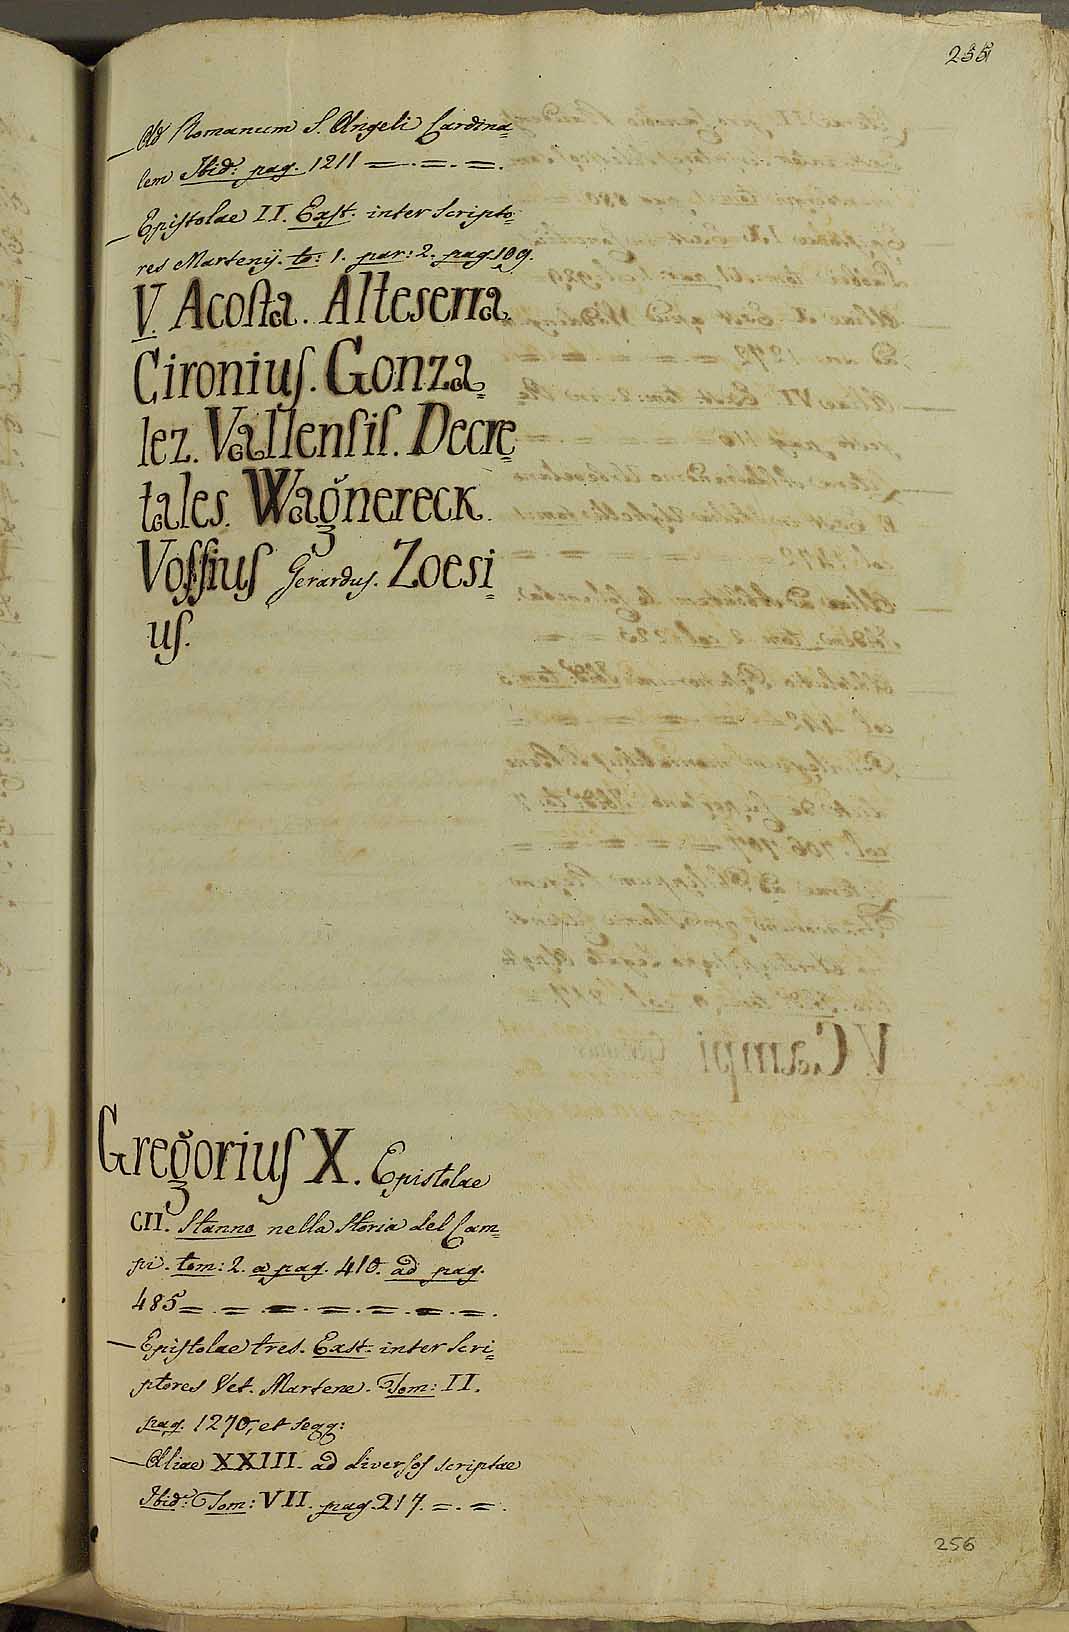 255
— Ad Romanum S. Angeli Cardina=
lem Ibid: pag. 1211 = . = . = .
— Epistolae II. Exst. inter Scripto=
res Martenij. to: 1. par: 2. pag. 109.
V. Acosta. Alteserra
Cironius. Gonza=
lez. Vallensis. Decre=
tales. Wagnereck.
Vossius Gerardus. Zoesi=
us.
Gregorius X. Epistolae
CII. Stanno nella Storia del Cam=
pi. tom: 2. a pag. 410. ad pag.
485 = . = . = . = . = . = . = .
— Epistolae tres. Exst. inter Scri=
ptores Vet. Martene. Tom: II.
pag. 1270, et segg:
— Aliae XXIII. ad diversos scriptae
Ibid: Tom: VII. pag. 217. = . = .
256